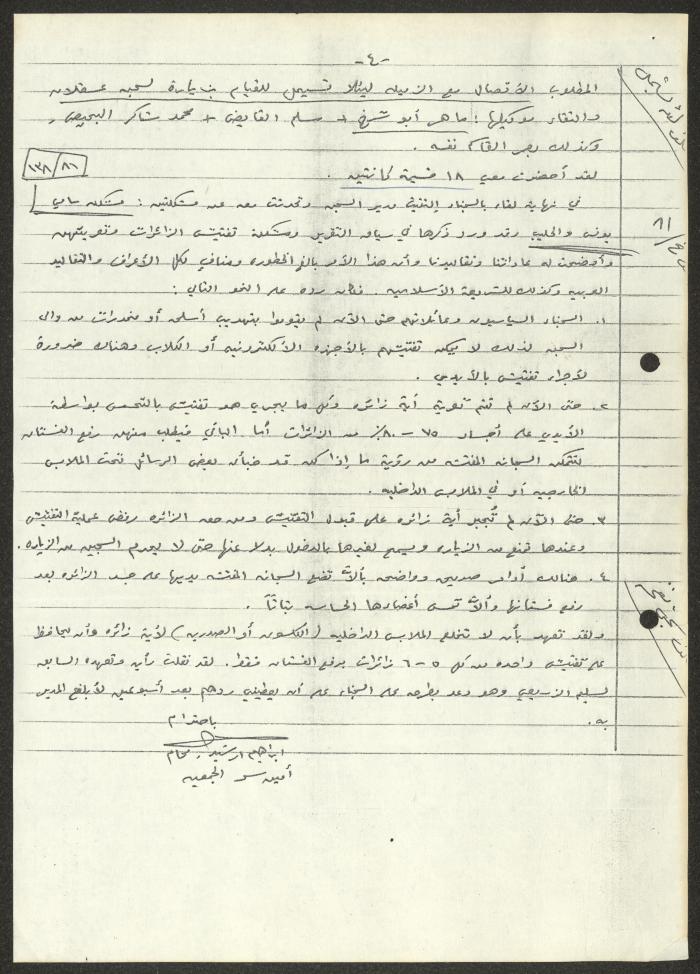 -٤-
المطلوب الاتصال مع الزميله ليئلا تسيمل للقيام بزيارة لسجن عسقلان
والتقاء موكليها : ماهر أبو شرخ + مسلم القايض + محمد شاكر البحيص ,
وكذلك بصر القاسم نفسه .
٨٦/١٣٨
لقد أحضرت معي ١٨ قسيمة كانتين .
في نهاية لقاء بالسجناء إلتقيت مدير السجن وتحدثت معه عن مشكلتين : مشكلة سامي
يونس والحليب وقد ورد ذكرها في سياق التقرير ومشكلة تفتيش الزائرات وتعريتهن
وأوضحت له عاداتنا وتقاليدنا وأن هذا الأمر بالغ الخطوره ومنافي لكل الأعراف والتقاليد
العربيه وكذلك للشريعة الأسلاميه . فكان رده على النحو التالي :
١. السجناء السياسيون وعائلاتهم حتى الآن لم يقوموا بتهريب أسلحه أو مخدرات من والى
السجن لذلك لا يمكن تفتيشهم بالأجهزه الألكترونيه أو الكلاب وهناك ضرورة
لأجراء تفتيش بالأيدي .
٢. حتى الآن لم تتم تعرية أية زائره وكل ما يجري هو تفتيش بالتحسس بواسطة
الأيدي على أجساد ٧٥-٨٠٪ من الزائرات أما الباقي فيطلب منهن رفع الفستان
لتتمكن السجانه المفتشه من رؤية ما إذا كن قد خبأن بعض الرسائل تحت الملابس
الخارجيه أو في الملابس الداخليه .
٣. حتى الآن لم تُجبر أية زائره على قبول التفتيش ومن حق الزائره رفض عملية التفتيش
وعندها تمنع من الزياره ويسمح لغيرها بالدخول بدلا عنها حتى لا يحرم السجين من الزياره .
٤. هنالك أوامر صريحه وواضحه بألاّ تضع السجانه المفتشه يديها على جسد الزائره بعد
رفع فستانها وألاّ تمس أعضاءها الحساسه بتاتاً .
ولقد تعهد بأن لا تخلع الملابس الداخليه ( الكلسون أو الصدريه ) لأية زائره وأن يحافظ
على تفتيش واحده من كل ٥-٦ زائرات برفع الفستان فقط . لقد نقلت رأيه وتعهده السابقه
لسليم الزريعي وهو وعد بطرحه على السجناء على أن يعطيني ردهم بعد أسبوعين لأبلغ المدير
به .
باحترام
ابراهيم ارشيد , محام
أمين سر الجمعيه